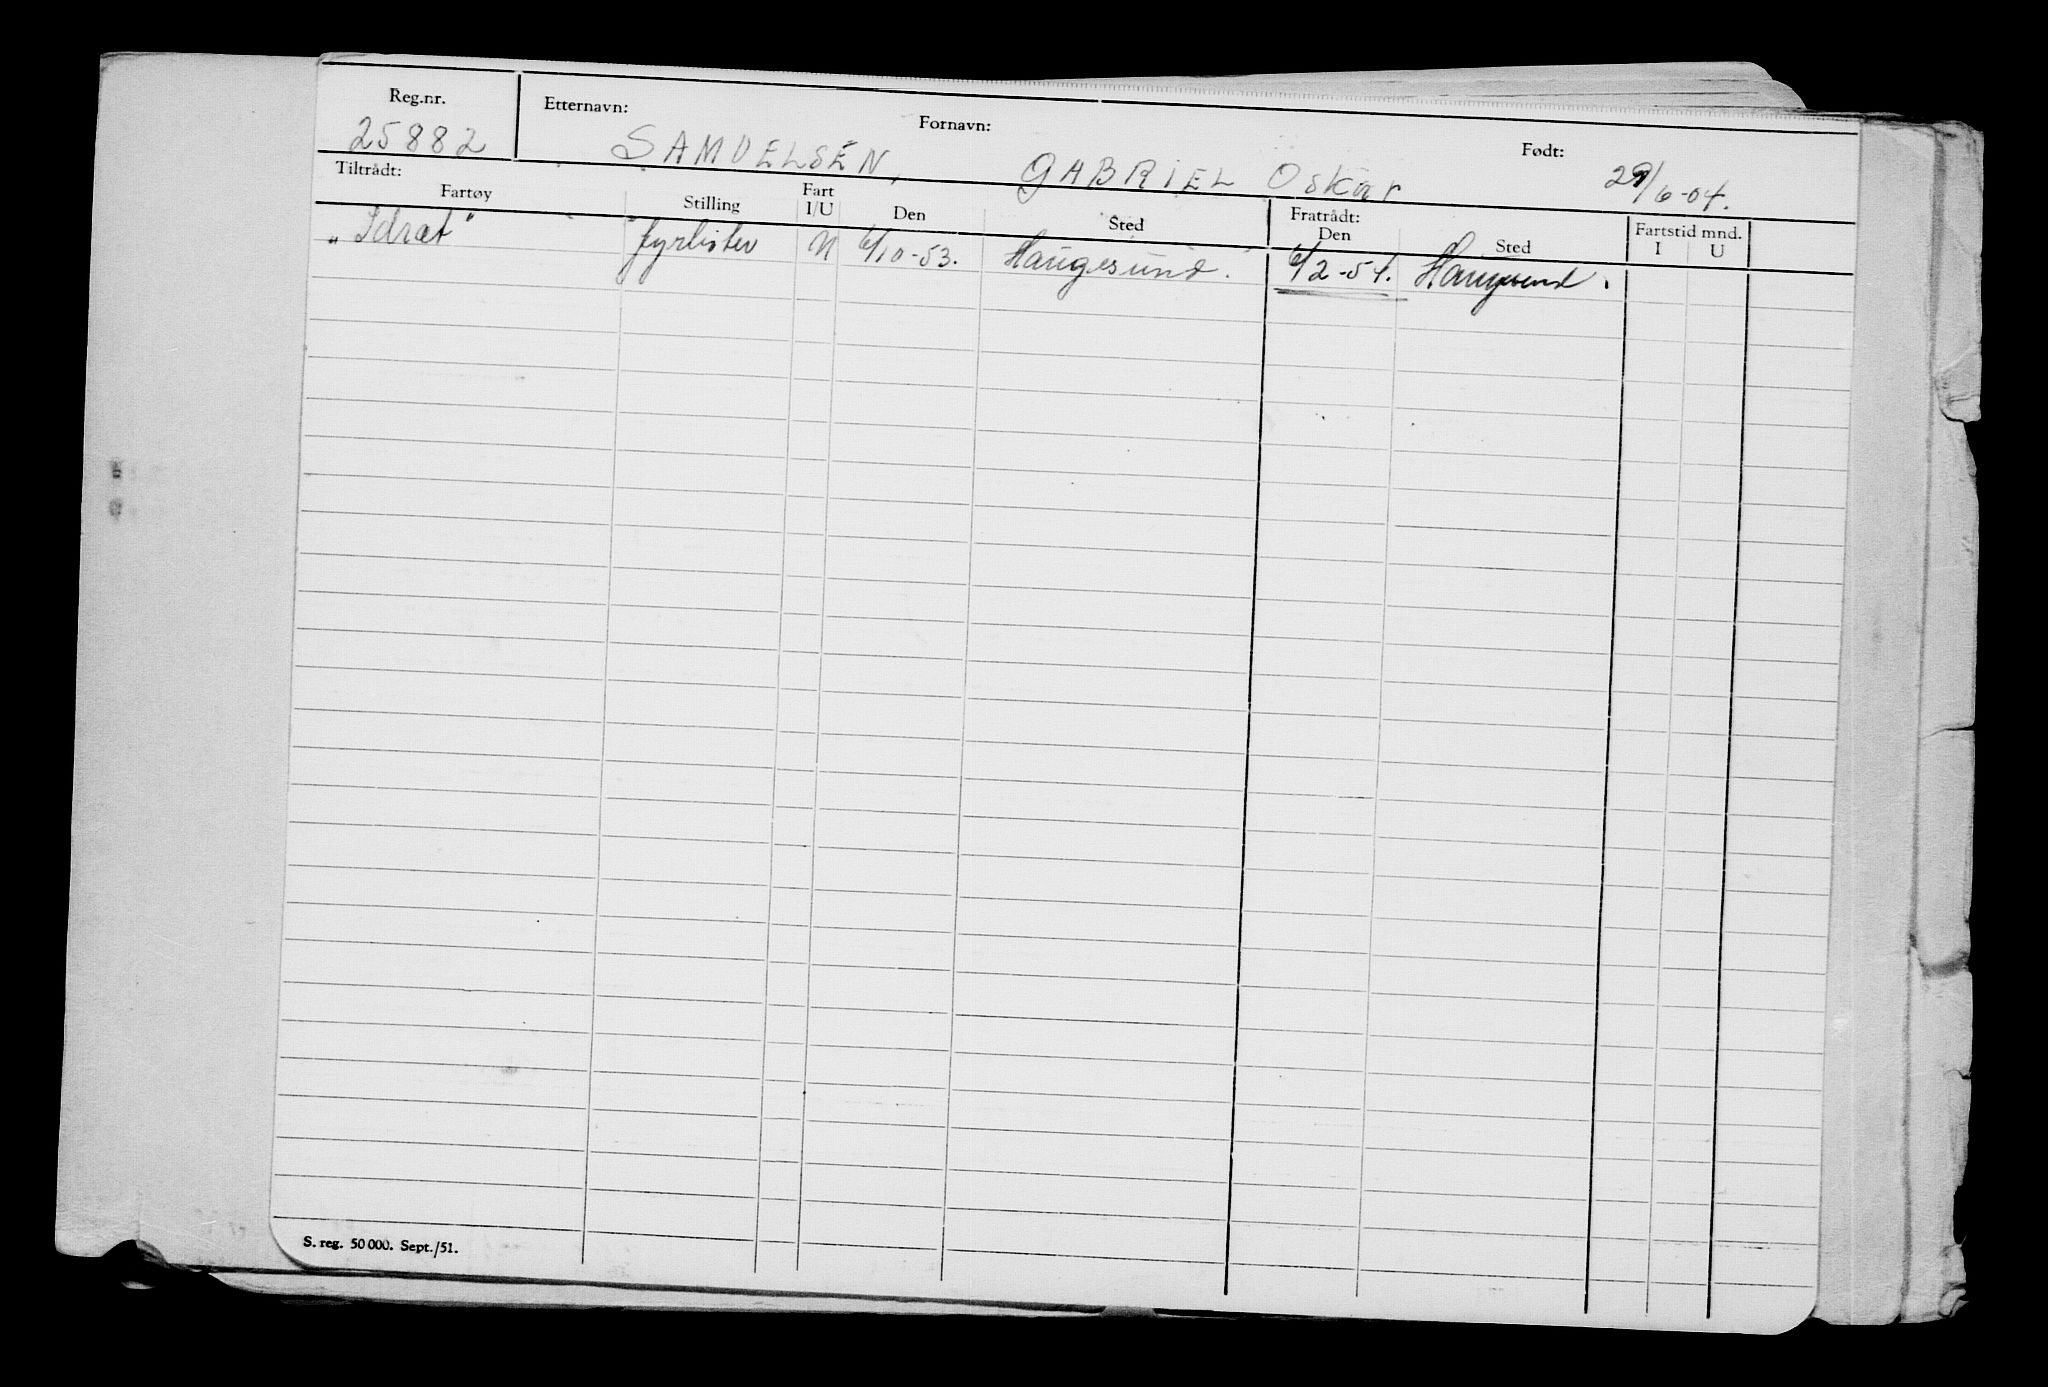 Reg.nr. Etternavn: Fornavn: Født:
25882 SAMUELSEN, GABRIEL Oskar 29/6-04.
Tiltrådt: Fratrådt: Fartstid mnd.
Fartøy Stilling Fart I/U Den Sted Den Sted I U
"Idræt" fyrbøter N 6/10-53. Haugesund. 6/2-54. Haugesund.
S. reg. 50 000. Sept./51.